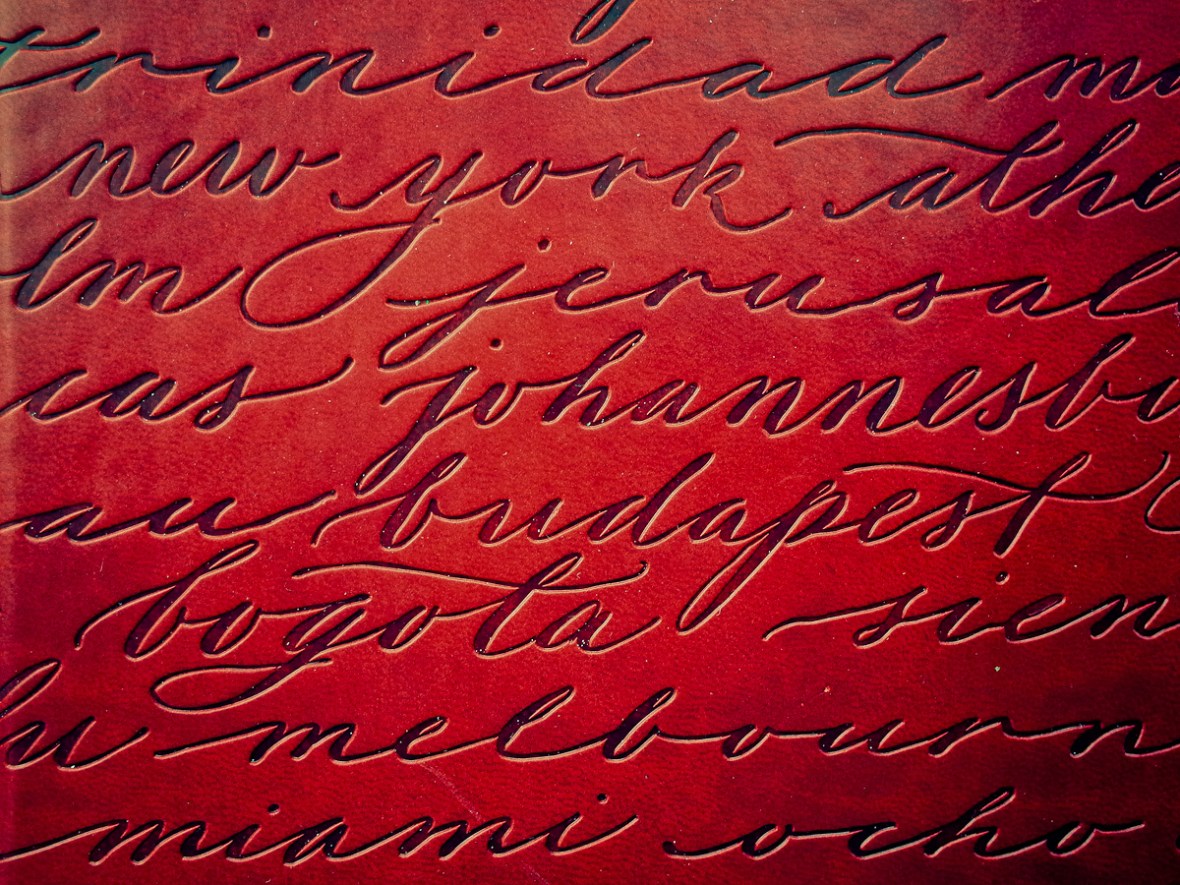 trinidad ma
new york athe
lm jerusal
cas johannesbu
au budapest
bogota sien
lu melbourn
miami ocho